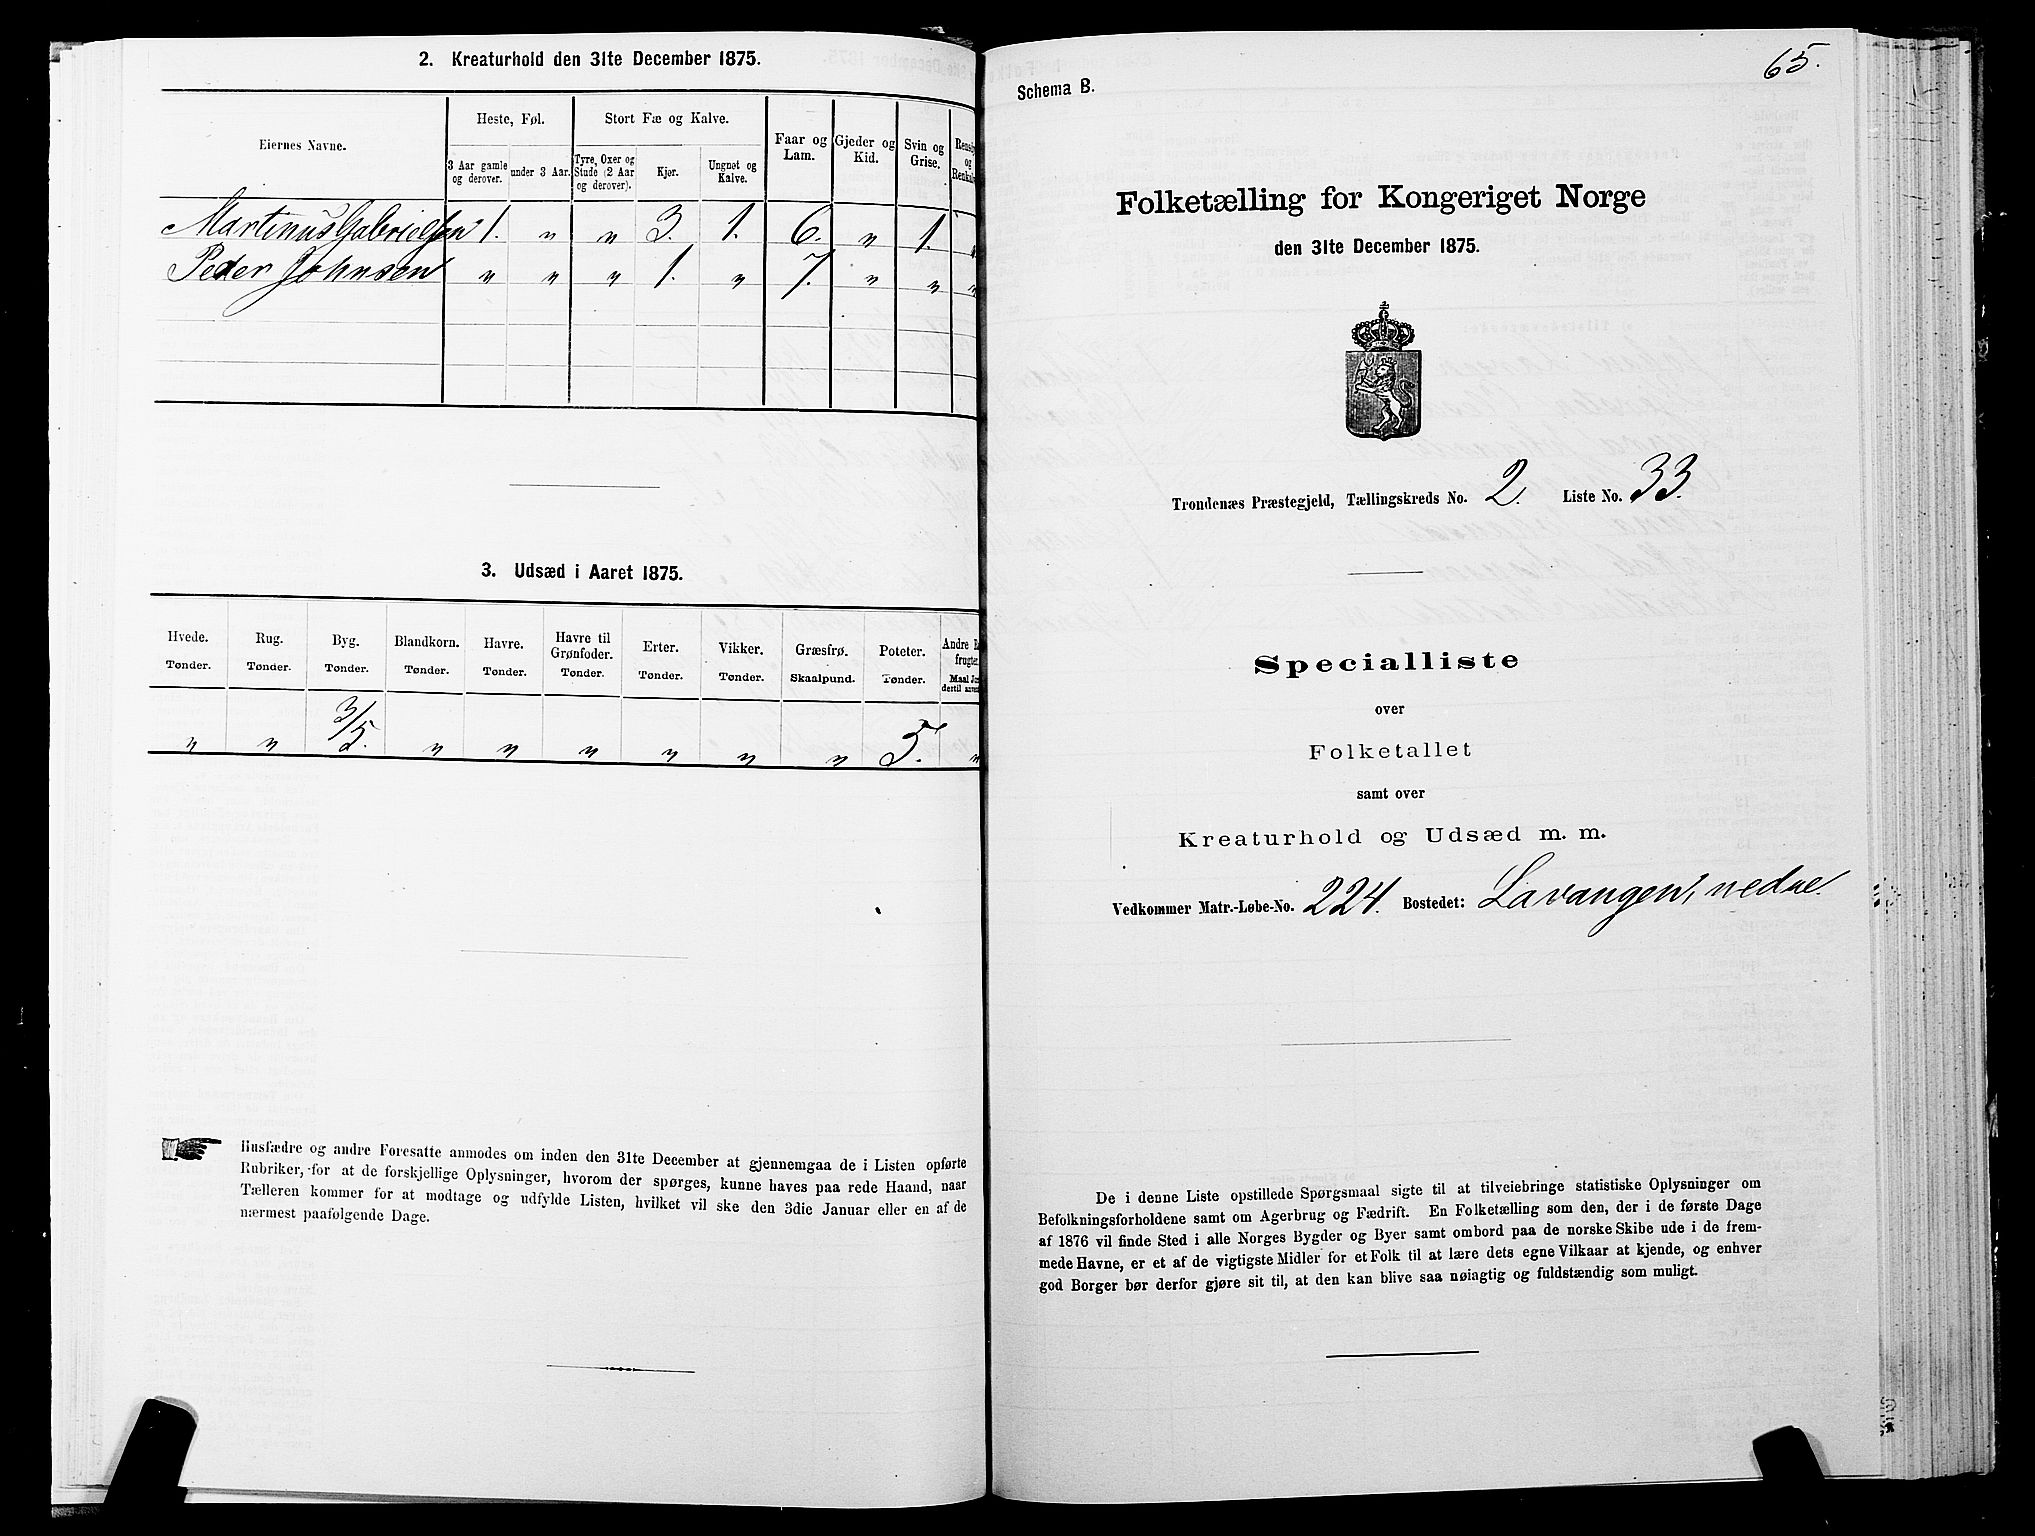 2. Kreaturhold den 31te December 1875.
Eiernes Navne.
Heste, Føl.
Stort Fæ og Kalve.
Faar og Lam.
Gjeder og Kid.
Svin og Grise.
3 Aar gamle og derover.
under 3 Aar.
Tyre, Oxer og Stude (2 Aar og derover).
Kjør.
Ungnøt og Kalve.
Martinus Gabrielsen 1. " " 3. 1. 6. " 1. "
Peder Johnsen " " " 1. " 7. " " "
3. Udsæd i Aaret 1875.
Hvede. Rug. Byg. Blandkorn. Havre. Havre til Grønfoder. Erter. Vikker. Græsfrø. Poteter.
Tønder. Tønder. Tønder. Tønder. Tønder. Tønder. Tønder. Tønder. Skaalpund. Tønder.
" " 3/5. " " " " " " 5. "
Husfædre og andre Foresatte anmodes om inden den 31te December at gjennemgaa de i Listen opførte
Rubriker, for at de forskjellige Oplysninger, hvorom der spørges, kunne haves paa rede Haand, naar
Tælleren kommer for at modtage og udfylde Listen, hvilket vil ske den 3die Januar eller en af de
nærmest paafølgende Dage.
65.
Schema B.
Folketælling for Kongeriget Norge
den 31te December 1875.
Trondenæs Præstegjeld, Tællingskreds No. 2. Liste No. 33.
Specialliste
over
Folketallet
samt over
Kreaturhold og Udsæd m. m.
Vedkommer Matr.-Løbe-No. 224. Bostedet: Lavangen, nedre
De i denne Liste opstillede Spørgsmaal sigte til at tilveiebringe statistiske Oplysninger om
Befolkningsforholdene samt om Agerbrug og Fædrift. En Folketælling som den, der i de første Dage
af 1876 vil finde Sted i alle Norges Bygder og Byer samt ombord paa de norske Skibe ude i de frem-
mede Havne, er et af de vigtigste Midler for et Folk til at lære dets egne Vilkaar at kjende, og enhver
god Borger bør derfor gjøre sit til, at den kan blive saa nøiagtig og fuldstændig som muligt.